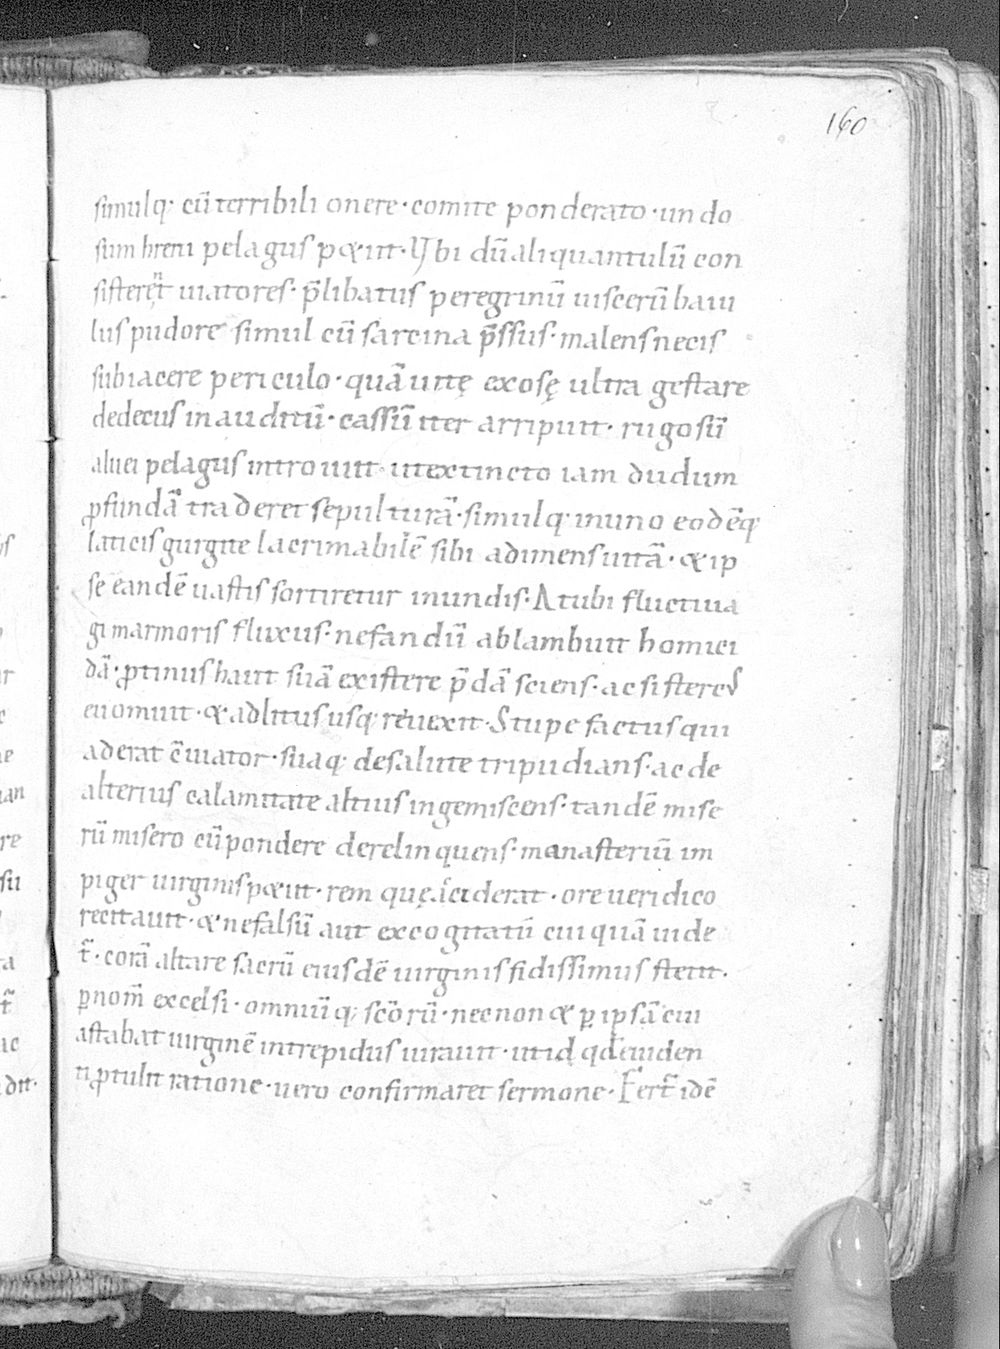 160
simulq· cū terribili onere· comite ponderato· undo
sum breui pelagus p&iit· Vbi dū aliquantulū con
sisterēt uiatores· p̄libatus peregrinū uiscerū baiu
lus pudore simul cū sarcina p̄ssus· malens necis
subiacere periculo· quā uitę exosę ultra gestare
dedecus inauditū· cassū iter arripuit· rugosū
aluei pelagus introiuit· ut extincto iam dudum
ꝓfundā traderet sepulturā· simulq· in uno eodēq·
laticis gurgite lacrimabilē sibi adimens uitā· & ip
se eandē uastis sortiretur in undis· At ubi fluctiua
gi marmoris fluxus· nefandū ablambuit homici
dā· ꝓtinus hauit suā existere p̄dā sciens· ac si stercꝰ
euomuit· & ad litus usq· reuexit· Stupefactus qui
aderat c̄uiator· suaq· de salute tripudians· ac de
alterius calamitate altius ingemiscens· tandē mise
rū misero cū pondere derelinquens· manasteriū im
piger uirginis p&iit· rem quę acciderat· ore ueridico
recitauit· & ne falsū aut excogitatū cuiquā uide
r̄t· corā altare sacrū eiusdē uirginis fidissimus stetit·
ꝑ nom̄ excelsi· omniūq; scōrū· necnon & ꝑ ipsā cui
astabat uirginē intrepidus iurauit· ut id qd̄ euiden
ti ꝓtulit ratione· uero confirmaret sermone· Fert̄ idē